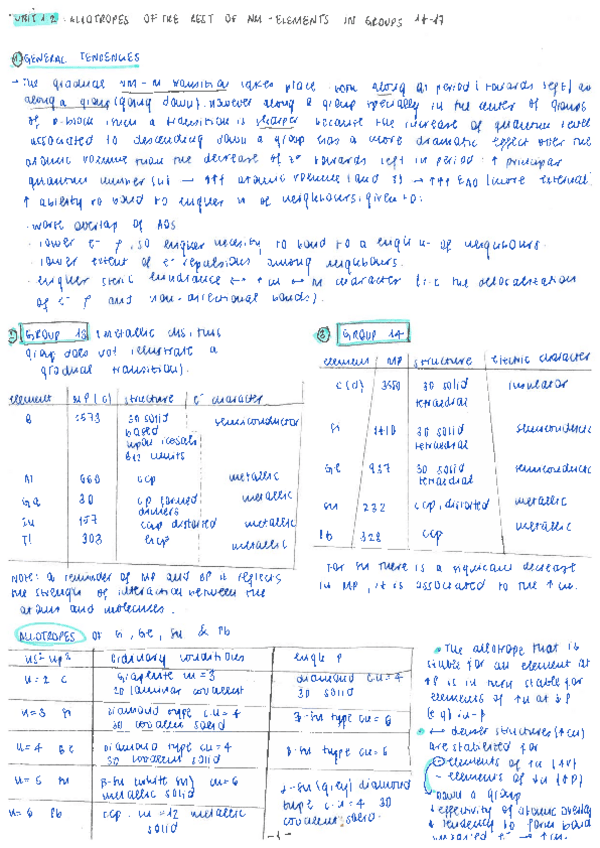 UNIT 1.2. ALLOTROPES OF THE REST OF NM-ELEMENTS IN GROUPS 14-17
① GENERAL TENDENCIES
→ The gradual NM-M transition takes place both along a period (towards left) and
along a group (going down). However along a group specially in the center of groups
of p-block such a transition is sharper because the increase of quantum level
associated to descending down a group has a more dramatic effect over the
atomic volume than the decrease of Z* towards left in period. ↑ principal
quantum number (n) → ↑↑↑ atomic volume (and r) → ↑↑↑ EAO (more external)
↑ ability to bond to higher nº of neighbours, given to:
· worse overlap of AOs
· lower e⁻ ρ, so higher necessity to bond to a high nº of neighbours.
· lower extent of e⁻ repulsions among neighbours.
· higher steric hindrance ↔ ↑ cn ↔ M character (i.e. the delocalization
of e⁻ ρ and non-directional bonds).
② GROUP 13 (metallic chs, this
group does not illustrate a
gradual transition).
element MP (C) structure e⁻ character
B 2573 3D solid semiconductor
based
upon icosah.
B12 units
Al 660 ccp metallic
Ga 30 cp formed metallic
dimers
In 157 ccp distorted metallic
Tl 303 hcp metallic
NOTE: a reminder of MP and BP it reflects
the strength of interaction between the
atoms and molecules.
③ GROUP 14
element MP structure electric character
C (d) 3550 3D solid insulator
tetraedral
Si 1410 3D solid semiconductor
tetraedral
Ge 937 3D solid semiconductor
tetraedral
Sn 232 ccp, distorted metallic
Pb 328 ccp metallic
For Sn there is a significant decrease
in MP, it is associated to the ↑ cn.
ALLOTROPES OF Si, Ge, Sn & Pb
ns² np² ordinary conditions high P
n=2 C Graphite cn=3 diamond c.n=4
2D laminar covalent 3D solid
n=3 Si Diamond type c.n=4 β-Sn type cn=6
3D covalent solid
n=4 Ge Diamond type cn=4 β-Sn type cn=6
3D covalent solid
n=5 Sn β-Sn (white Sn) cn=6 α-Sn (grey) diamond
metallic solid type c.n=4 3D
n=6 Pb ccp. cn=12 metallic covalent solid.
solid
• The allotrope that is
stable for an element at
↑P is in turn stable for
elements of ↑n at
• ↔ denser structures (↑cn)
are stabilized for
elements of ↑n
elements of ↑n (↑P)
down a group
↓ effectivity of atomic overlap
↓ tendency to form bond
→ ↑ cn.
-1-